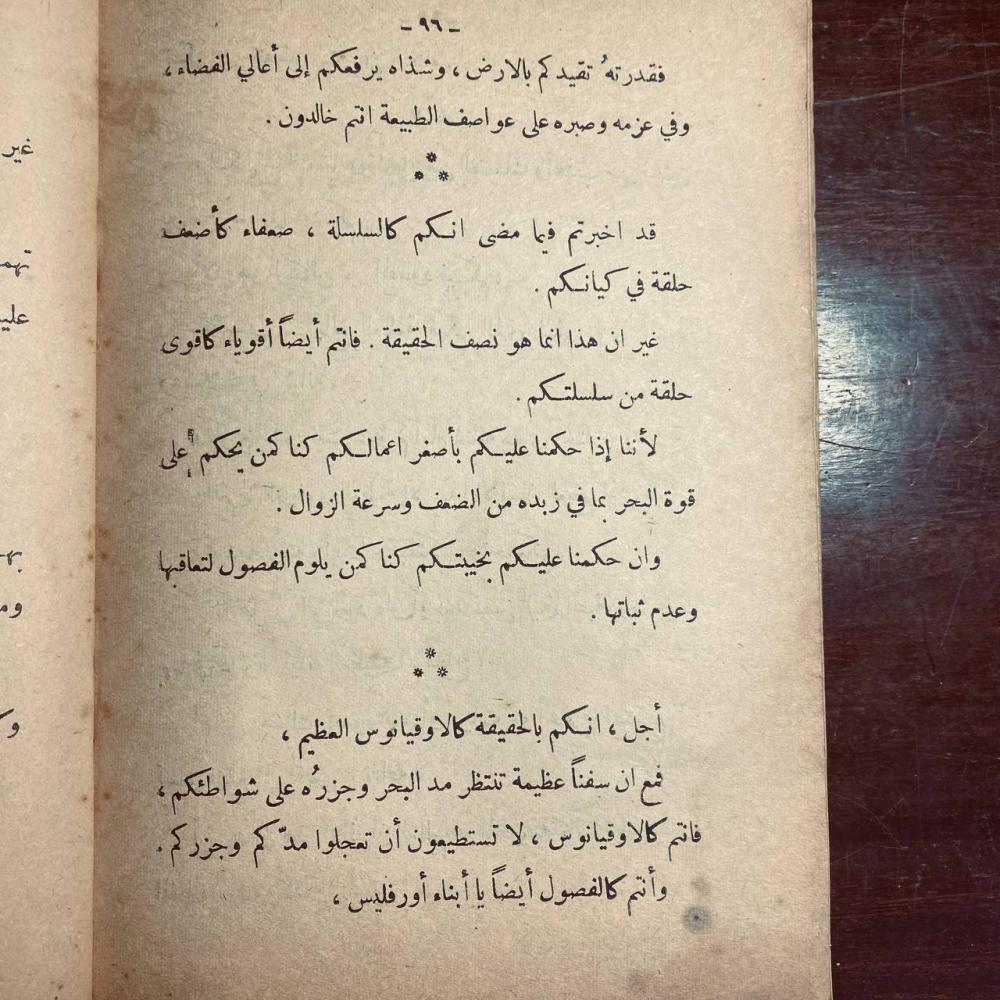 - ٩٦ -
فقدرتهُ تقيدكم بالارض ، وشذاه يرفعكم إلى أعالي الفضاء ،
وفي عزمه وصبره على عواصف الطبيعة انتم خالدون .
قد اخبرتم فيما مضى انكم كالسلسلة ، ضعفاء كأضعف
حلقة في كيانكم .
غير ان هذا انما هو نصف الحقيقة . فانتم أيضاً أقوياء كاقوى
حلقة من سلسلتكم .
لأننا إذا حكمنا عليكم بأصغر اعمالكم كنا كمن يحكم على
قوة البحر بما في زبده من الضعف وسرعة الزوال .
وان حكمنا عليكم بخيبتكم كنا كمن يلوم الفصول لتعاقبها
وعدم ثباتها .
أجل ، انكم بالحقيقة كالاوقيانوس العظيم ،
فمع ان سفناً عظيمة تنتظر مد البحر وجزرُه على شواطئكم ،
فانتم كالاوقيانوس ، لا تستطيعون أن تعجلوا مدّكم وجزركم .
وأنتم كالفصول أيضاً يا أبناء أورفليس ،
غير